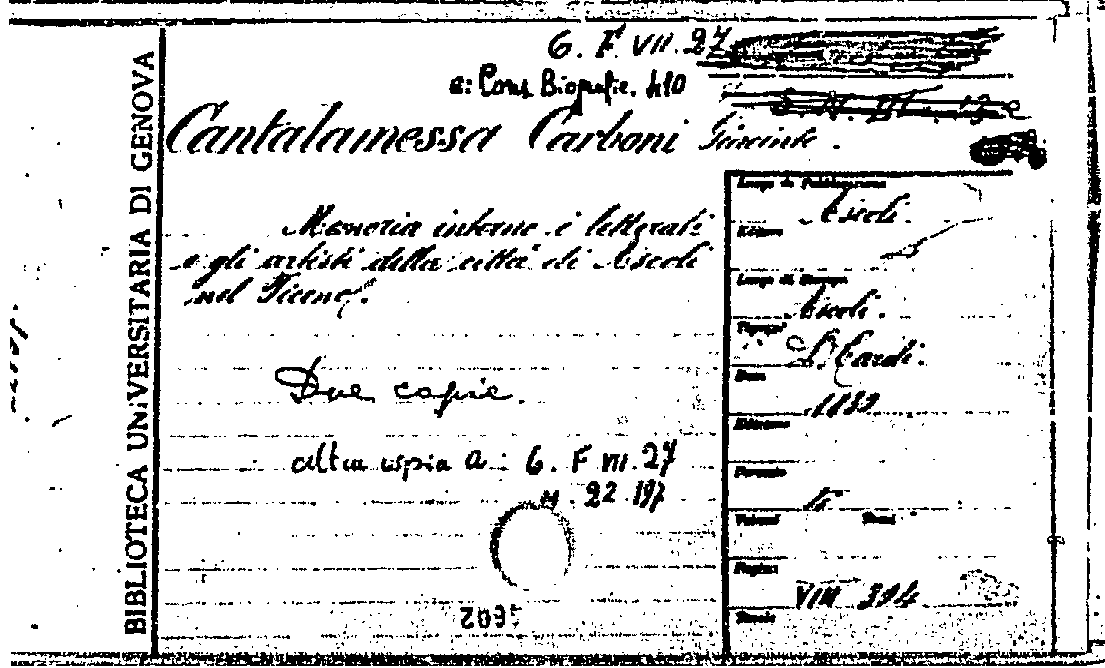 BIBLIOTECA UNIVERSITARIA DI GENOVA
G. F. VII. 27
a: Cons. Biografie. 410
Cantalamessa Carboni Giacinto.
Memorie intorno i letterati
e gli artisti della città di Ascoli
nel Piceno.
Due copie.
altra copia a: G. F VII. 27
H. 22. 197
Luogo di Pubblicazione
Ascoli.
Editore
Luogo di Stampa
Ascoli.
Tipogr.
L. Cardi.
Data
Edizione
Formato
Volumi
Pagine
VIII 394